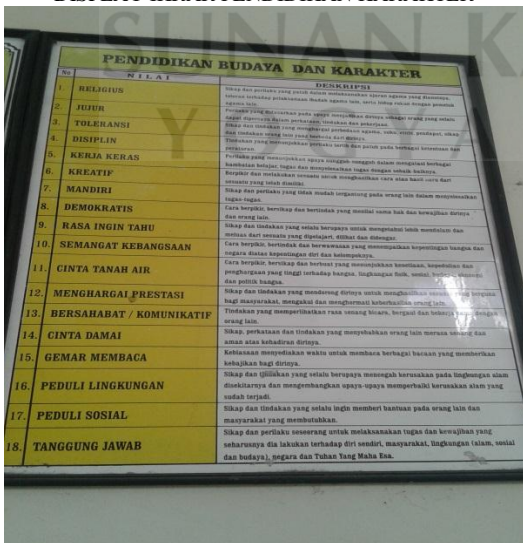 SUNAN K
PENDIDIKAN BUDAYA DAN KARAKTER
No NILAI DESKRIPSI
1. RELIGIUS Sikap dan perilaku yang patuh dalam melaksanakan ajaran agama yang dianutnya,
toleran terhadap pelaksanaan ibadah agama lain, serta hidup rukun dengan pemeluk
agama lain.
2. JUJUR Perilaku yang didasarkan pada upaya menjadikan dirinya sebagai orang yang selalu
dapat dipercaya dalam perkataan, tindakan dan pekerjaan
3. TOLERANSI Sikap dan tindakan yang menghargai perbedaan agama, suku, etnis, pendapat, sikap
dan tindakan orang lain yang berbeda dari dirinya.
4. DISIPLIN Tindakan yang menunjukkan perilaku tertib dan patuh pada berbagai ketentuan dan
peraturan
5. KERJA KERAS Perilaku yang menunjukkan upaya sungguh-sungguh dalam mengatasi berbagai
hambatan belajar, tugas dan menyelesaikan tugas dengan sebaik-baiknya.
6. KREATIF Berpikir dan melakukan sesuatu untuk menghasilkan cara atau hasil baru dari
sesuatu yang telah dimiliki.
7. MANDIRI Sikap dan perilaku yang tidak mudah tergantung pada orang lain dalam menyelesaikan
tugas-tugas.
8. DEMOKRATIS Cara berpikir, bersikap dan bertindak yang menilai sama hak dan kewajiban dirinya
dan orang lain.
9. RASA INGIN TAHU Sikap dan tindakan yang selalu berupaya untuk mengetahui lebih mendalam dan
meluas dari sesuatu yang dipelajari, dilihat dan didengar.
10. SEMANGAT KEBANGSAAN Cara berpikir, bertindak dan berwawasan yang menempatkan kepentingan bangsa dan
negara diatas kepentingan diri dan kelompoknya.
11. CINTA TANAH AIR Cara berpikir, bersikap dan berbuat yang menunjukkan kesetiaan, kepedulian dan
penghargaan yang tinggi terhadap bangsa, lingkungan fisik, sosial, budaya, ekonomi
dan politik bangsa.
12. MENGHARGAI PRESTASI Sikap dan tindakan yang mendorong dirinya untuk menghasilkan sesuatu yang berguna
bagi masyarakat, mengakui dan menghormati keberhasilan orang lain.
13. BERSAHABAT / KOMUNIKATIF Tindakan yang memperlihatkan rasa senang bicara, bergaul dan bekerja sama dengan
orang lain.
14. CINTA DAMAI Sikap, perkataan dan tindakan yang menyebabkan orang lain merasa senang dan
aman atas kehadiran dirinya.
15. GEMAR MEMBACA Kebiasaan menyediakan waktu untuk membaca berbagai bacaan yang memberikan
kebajikan bagi dirinya.
16. PEDULI LINGKUNGAN Sikap dan tindakan yang selalu berupaya mencegah kerusakan pada lingkungan alam
disekitarnya dan mengembangkan upaya-upaya memperbaiki kerusakan alam yang
sudah terjadi.
17. PEDULI SOSIAL Sikap dan tindakan yang selalu ingin memberi bantuan pada orang lain dan
masyarakat yang membutuhkan.
18. TANGGUNG JAWAB Sikap dan perilaku seseorang untuk melaksanakan tugas dan kewajiban yang
seharusnya dia lakukan terhadap diri sendiri, masyarakat, lingkungan (alam, sosial
dan budaya), negara dan Tuhan Yang Maha Esa.